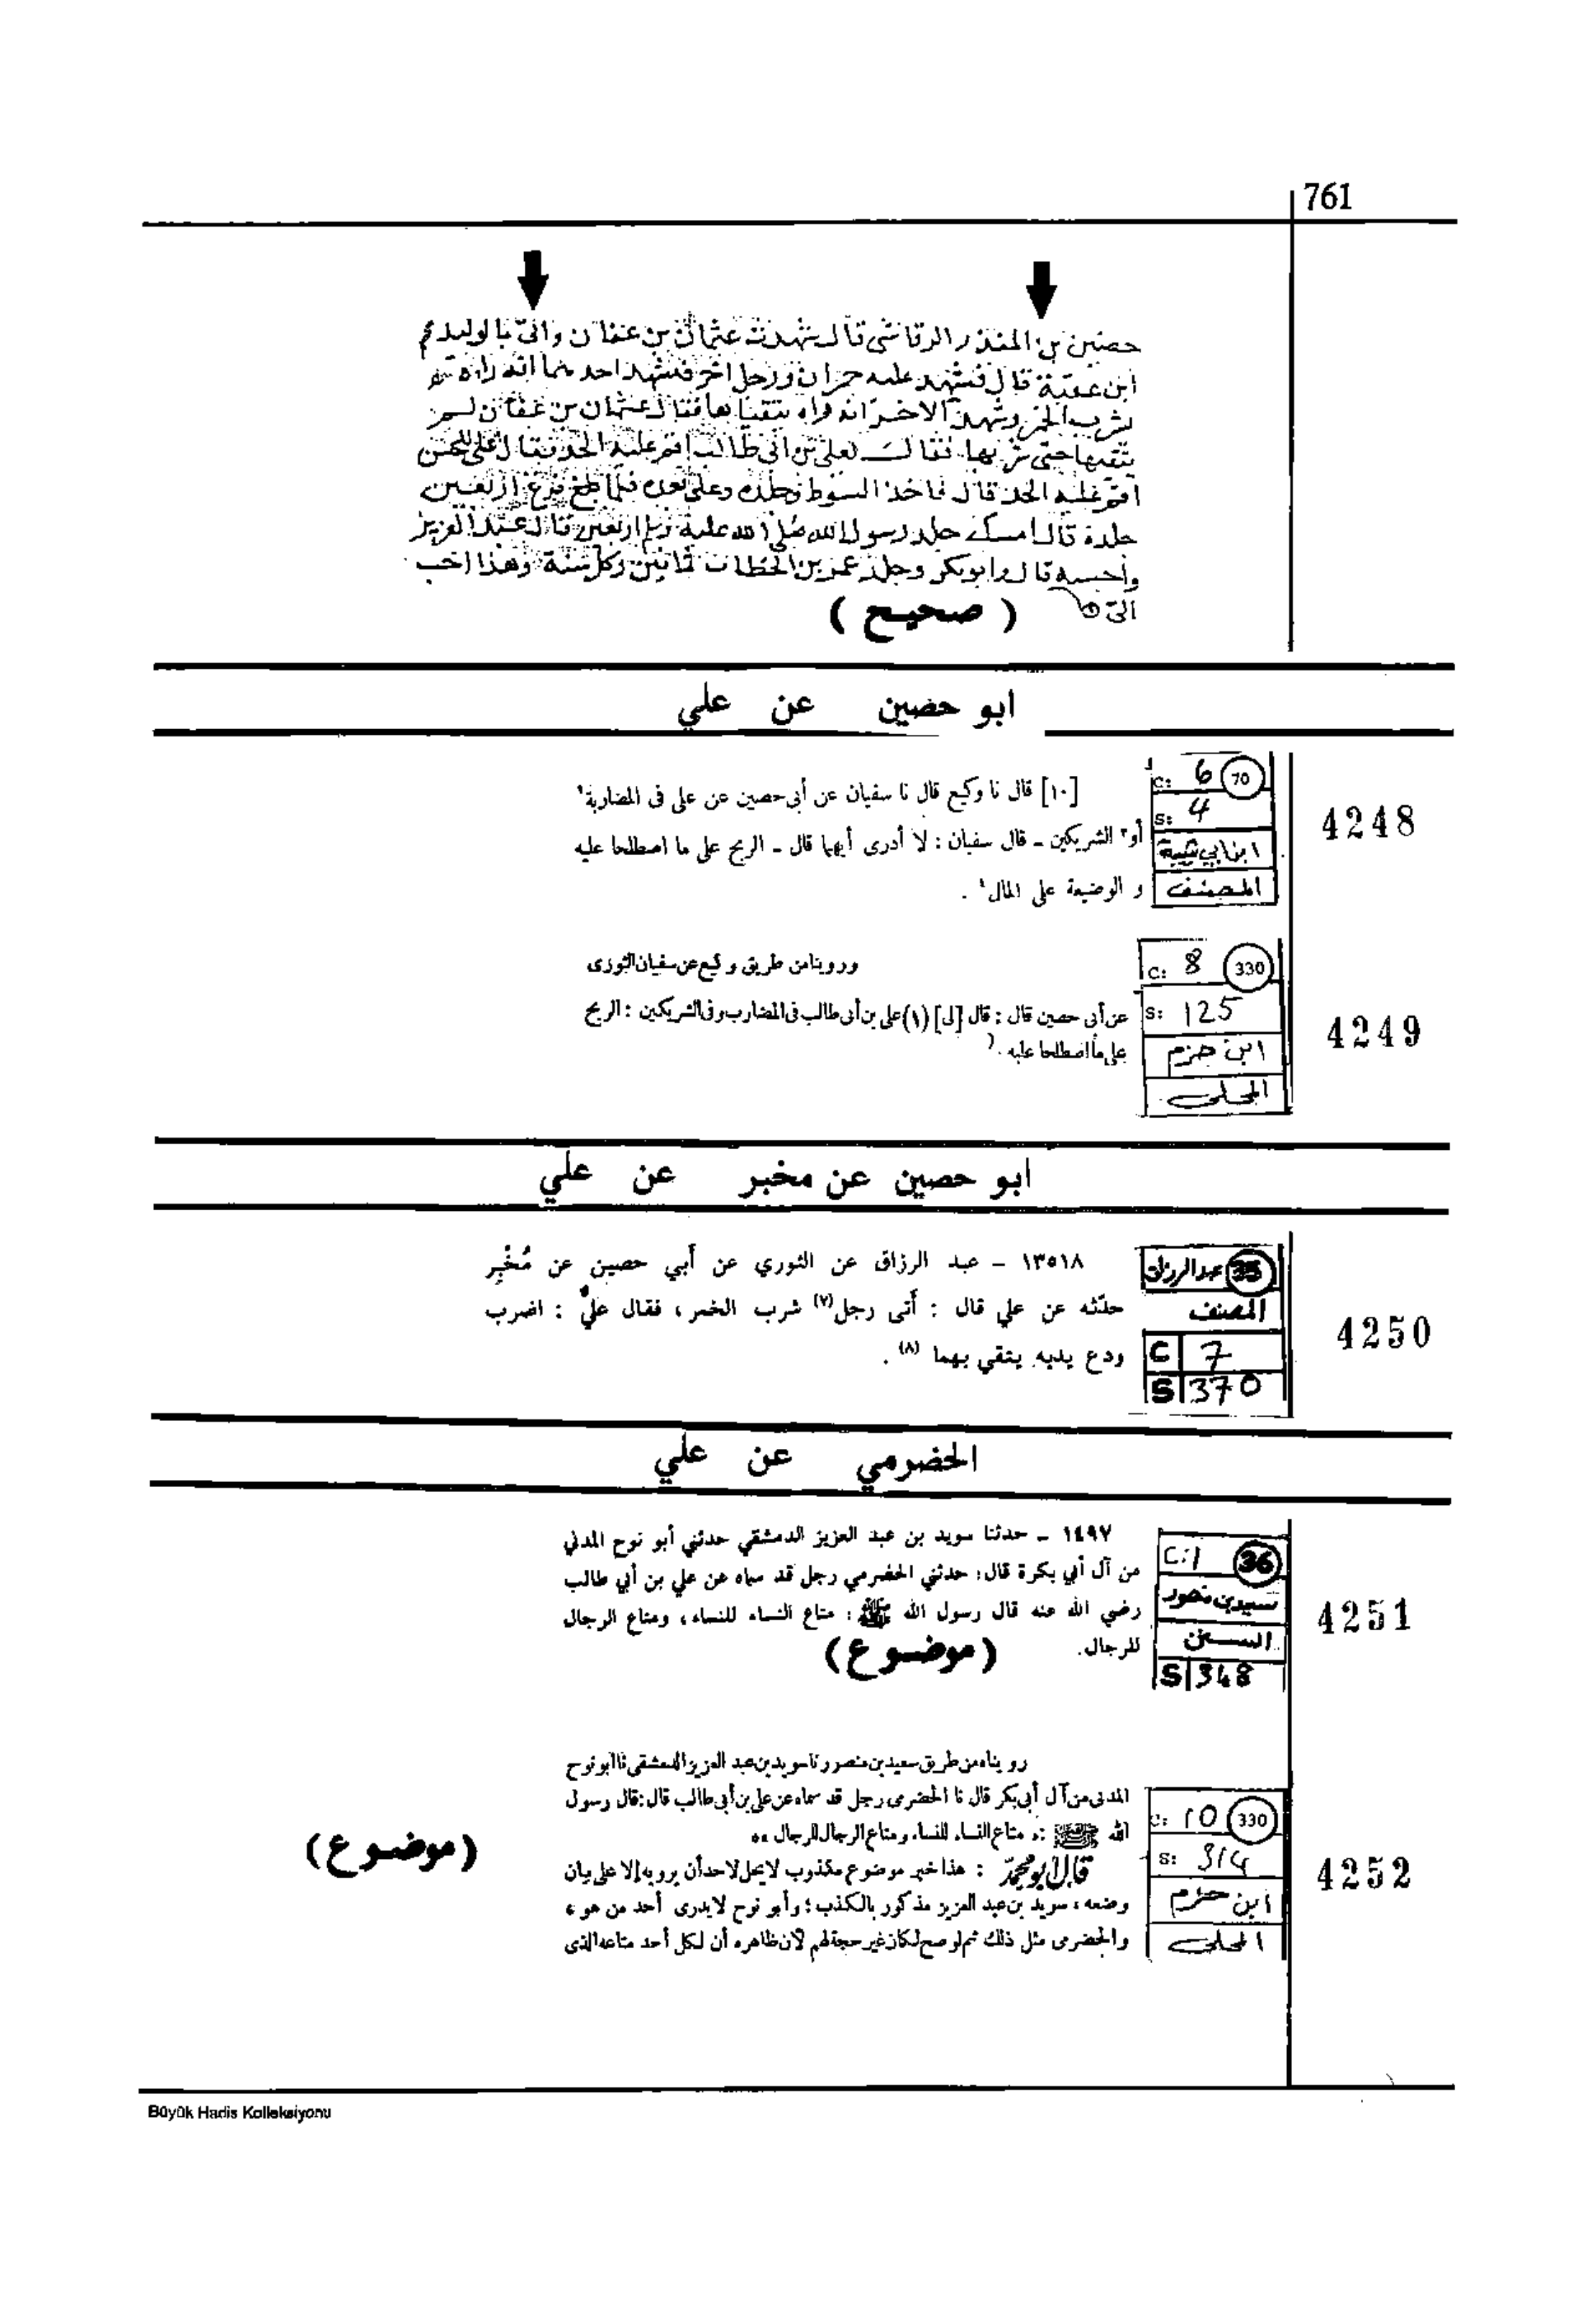 761
حضين بن المنذر الرقاشي قال شهدت عثمان بن عفان واتى بالوليد
ابن عقبة قال فشهد عليه حمران ورجل اخر فشهد احدهما انه راه
يشرب الخمر وشهد الاخر انه راه يتقيأها فقال عثمان بن عفان لم
يتقيها حتى شربها فقال لعلي بن ابي طالب اقم عليه الحد فقال علي للحسن
اقم عليه الحد قال فاخذ السوط فجلده وعلي يعد فلما بلغ اربعين
جلدة قال امسك جلد رسول الله صلى الله عليه وسلم اربعين قال عبد العزيز
واحسبه قال وابو بكر وجلد عمر بن الخطاب ثمانين وكل سنة وهذا احب
الي
(صحيح)
ابو حصين عن علي
C: 6 70
S: 4
ابن ابي شيبة
المصنف
4248
[١٠] قال نا وكيع قال نا سفيان عن أبي حصين عن على فى المضاربة
أو الشريكين ـ قال سفيان : لا أدرى أيهما قال ـ الربح على ما اصطلحا عليه
و الوضيعة على المال .
C: 8 330
S: 125
ابن حزم
المحلى
4249
وروينا من طريق وكيع عن سفيان الثورى
عن أبى حصين قال : قال [لى] (١) على بن أبى طالب فى المضارب وفى الشريكين : الربح
على ما اصطلحا عليه .
ابو حصين عن مخبر عن علي
35 عبد الرزاق
المصنف
C 7
S 370
4250
١٣٥١٨ ـ عبد الرزاق عن الثوري عن أبي حصين عن مُخْبِر
حدّثه عن علي قال : أتى رجل (٧) شرب الخمر ، فقال عليٌّ : اضرب
ودع يديه يتقي بهما (٨) .
الحضرمي عن علي
C:1 36
سعيد بن منصور
السنن
S 348
4251
١٤٩٧ ـ حدثنا سويد بن عبد العزيز الدمشقي حدثني أبو نوح المدني
من آل أبي بكرة قال: حدثني الحضرمي رجل قد سماه عن علي بن أبي طالب
رضي الله عنه قال رسول الله ﷺ : متاع النساء للنساء، ومتاع الرجال
للرجال.
(موضوع)
C: 10 330
S: 314
ابن حزم
المحلى
4252
رويناه من طريق سعيد بن منصور نا سويد بن عبد العزيز الدمشقى نا أبو نوح
المدنى من آل أبى بكر قال نا الحضرمى رجل قد سماه عن على بن أبى طالب قال : قال رسول
الله ﷺ : « متاع النساء للنساء ومتاع الرجال للرجال »
قال أبو محمد : هذا خبر موضوع مكذوب لا يحل لاحد أن يرويه إلا على بيان
وضعه ، سويد بن عبد العزيز مذكور بالكذب ؛ وأبو نوح لا يدرى أحد من هو ،
والحضرمى مثل ذلك ثم لو صح لكان غير حجة لهم لأن ظاهره أن لكل أحد متاعه الذى
(موضوع)
Büyük Hadis Kolleksiyonu